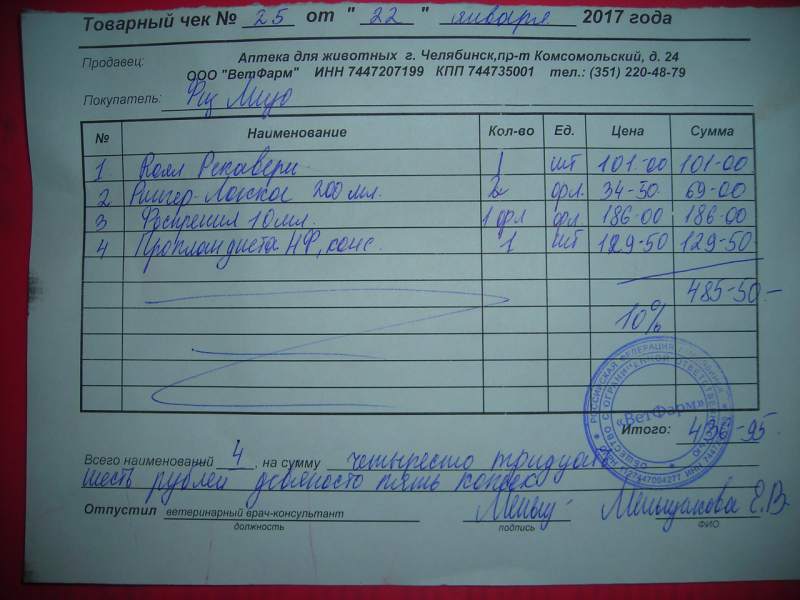 Товарный чек № 25 от "22" января 2017 года
Продавец: Аптека для животных г. Челябинск,пр-т Комсомольский, д. 24
ООО "ВетФарм" ИНН 7447207199 КПП 744735001 тел.: (351) 220-48-79
Покупатель:
№ Наименование Кол-во Ед. Цена Сумма
1 Роял Рекавери 1 шт 101-00 101-00
2 Рингер-Локка 200 мл. 2 фл. 34-50 69-00
3 10 мл. 1 фл фл. 186-00 186-00
4 Проплан диета НФ, конс. 1 шт 129-50 129-50
485-50-
10%
"ВетФарм"
Итого: 436-95
Всего наименований 4, на сумму четыресто тридцать
шесть рублей девяносто пять копеек
Отпустил ветеринарный врач-консультант Меньщ Меньщакова Е.В.
должность подпись ФИО